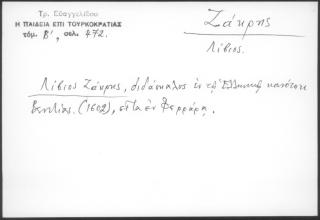 Τρ. Ευαγγελίδου
Η ΠΑΙΔΕΙΑ ΕΠΙ ΤΟΥΡΚΟΚΡΑΤΙΑΣ
τόμ. Β', σελ. 472.
Ζάκρης
Λίβιος.
Λίβιος Ζάκρης, διδάσκαλος ἐν τῇ Ἑλληνικῇ κοινότητι
Βενετίας (1602), εἶτα ἐν Φερράρᾳ.